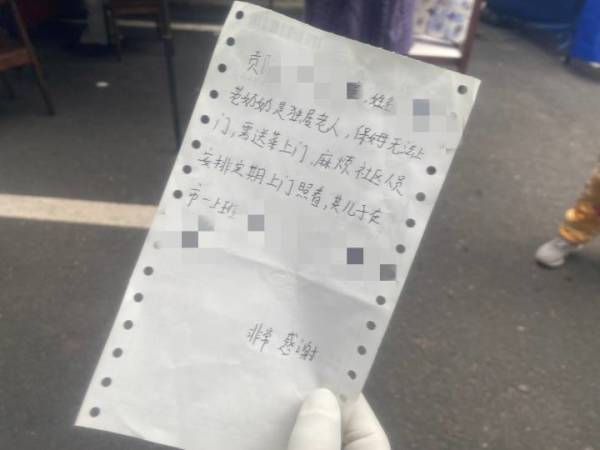 贡
姓
老奶奶是独居老人，保姆无法上
门，需送菜上门，麻烦社区人员
安排定期上门照看，其儿子在
市一上班
非常感谢